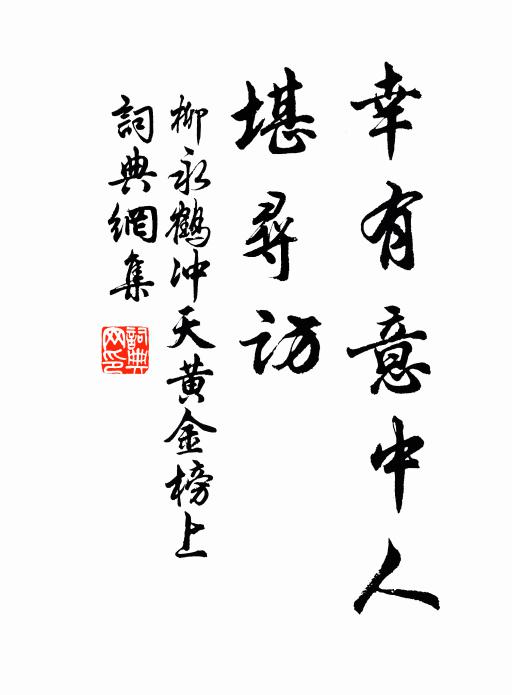 幸有意中人
堪尋訪
柳永鶴冲天黄金榜上
詞典網集
詞典网印